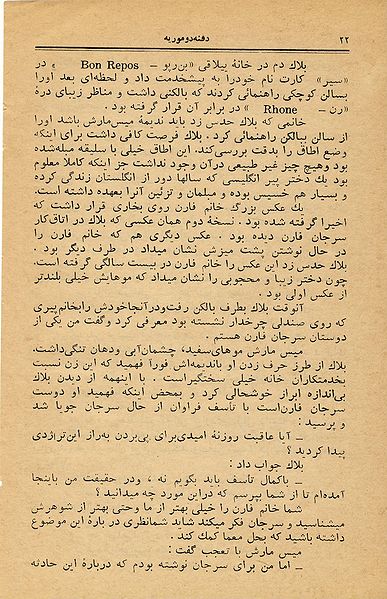 ۲۲ دفنه‌دوموریه
بلاك دم در خانهٔ ییلاقی «بن‌رپو - Bon Repos » در
«سیر» کارت نام خودرا به پیشخدمت داد و لحظه‌ای بعد اورا
بسالن کوچکی راهنمائی کردند که بالکنی داشت و مناظر زیبای درهٔ
«رن - Rhone » در برابر آن قرار گرفته بود .
خانمی که بلاك حدس زد باید ندیمهٔ میس‌مارش باشد اورا
از سالن ببالکن راهنمائی کرد . بلاك فرصت کافی داشت برای اینکه
وضع اطاق را بدقت بررسی‌کند، این اطاق خیلی با سلیقه مبله‌شده
بود وهیچ چیز غیر طبیعی درآن وجود نداشت جز اینکه کاملا معلوم
بود یك دختر پیر انگلیسی که سالها دور از انگلستان زندگی کرده
و بسیار هم خسیس بوده و مبلمان و تزئین آنرا بعهده داشته است.
یك عکس بزرگ خانم فارن روی بخاری قرار داشت که
اخیرا گرفته شده بود . نسخهٔ دوم همان عکسی که بلاك در اتاق‌کار
سرجان فارن دیده بود . عکس دیگری هم که خانم فارن را
در حال نوشتن پشت میزش نشان میداد در طرف دیگر بود .
بلاك حدس زد این عکس را خانم فارن در بیست سالگی گرفته است.
چون دختر زیبا و محجوبی را نشان میداد که موهایش خیلی بلندتر
از عکس اولی بود .
آنوقت بلاك بطرف بالکن رفت‌ودرآنجاخودش رابخانم‌پیری
که روی صندلی چرخدار نشسته بود معرفی کرد وگفت من یکی از
دوستان سرجان فارن هستم .
میس مارش موهای‌سفید، چشمان‌آبی ودهان تنگی‌داشت.
بلاك از طرز حرف زدن او باندیمه‌اش فورآ فهمید که این زن نسبت
بخدمتکاران خانه خیلی سختگیراست . با اینهمه از دیدن بلاك
بی‌اندازه ابراز خوشحالی کرد و بمحض اینکه فهمید او دوست
سرجان فارن‌است با تأسف فراوان از حال سرجان جویا شد
و پرسید :
ـ آیا عاقبت روزنهٔ امیدی‌برای پی‌بردن به‌راز این‌تراژدی
پیدا کردید ؟
بلاك جواب داد :
ـ باکمال تأسف باید بگویم نه ، ودر حقیقت من باینجا
آمده‌ام تا از شما بپرسم که دراین مورد چه میدانید ؟
شما خانم فارن را خیلی بهتر از ما وحتی بهتر از شوهرش
میشناسید و سرجان فکر میکند شاید شمانظری در بارهٔ این موضوع
داشته باشید که بحل معما کمك کند .
میس مارش با تعجب گفت :
ـ اما من برای سرجان نوشته بودم که دربارهٔ این حادثه